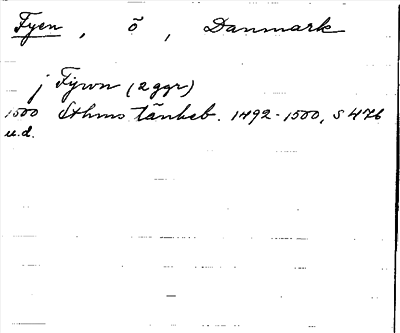 Fyen, ö, Danmark
j Fywn (2 ggr)
1500 Sthms tänkeb. 1492-1500, s 476
u.d.